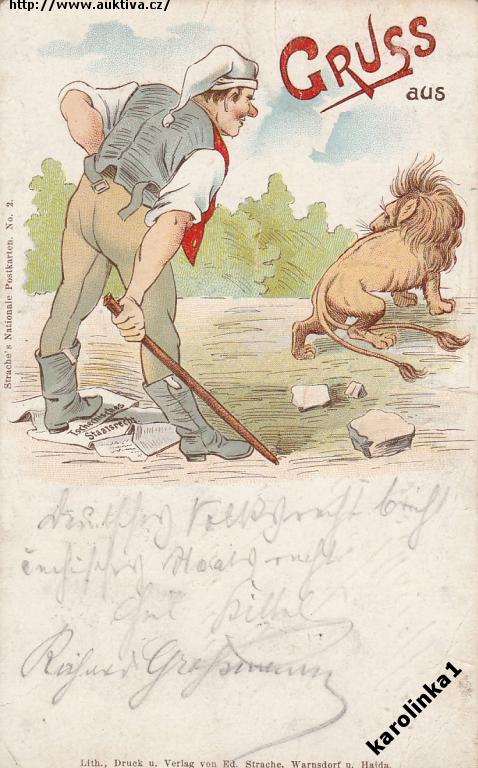 http://www.auktiva.cz/
GRUSS
aus
Strache's Nationale Postkarten. No. 2.
Tschechisches
Staatsrecht
Deutsches Volksrecht bricht
Staatsrecht
Richard
karolinka1
Lith., Druck u. Verlag von Ed. Strache, Warnsdorf u. Haida.